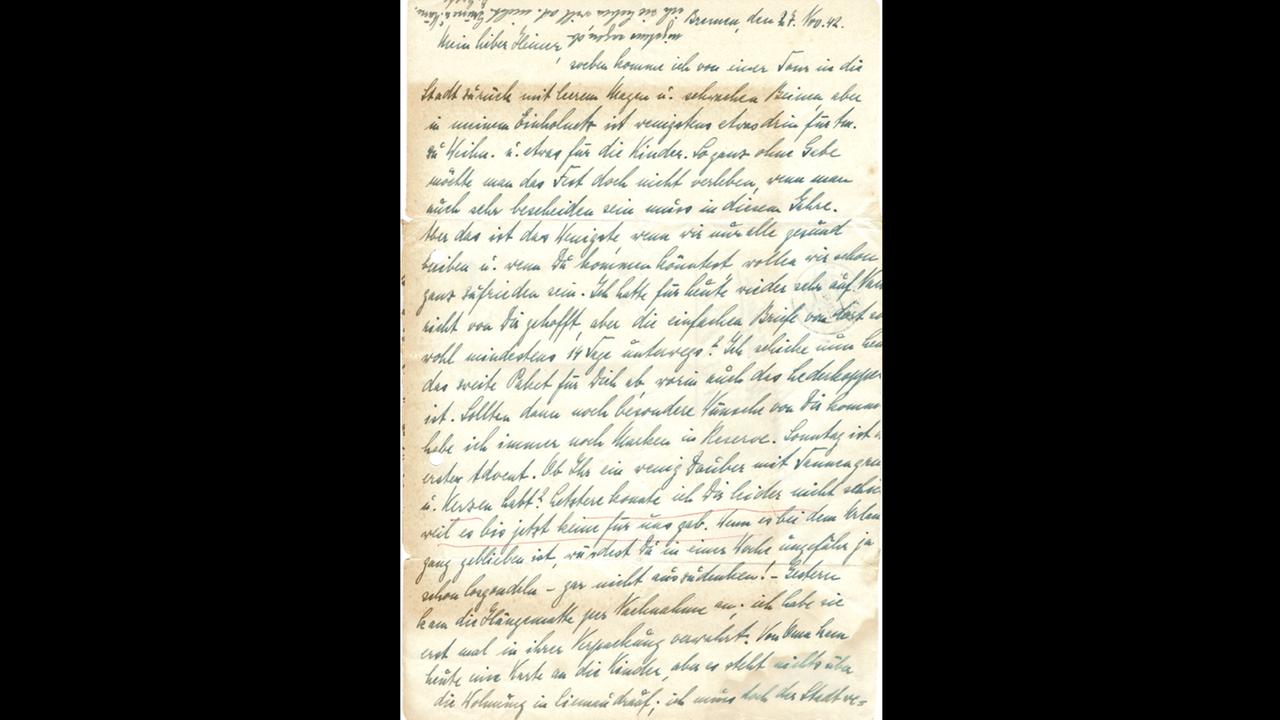 Bremen, den 27. Nov. 42.
Mein lieber Heiner,
soeben komme ich von einer Tour in die
Stadt zurück mit leerem Magen u. schwachen Beinen, aber
in meinem Einholnetz ist wenigstens etwas drin für
zu Weihn. u. etwas für die Kinder. So ganz ohne Gabe
möchte man das Fest doch nicht verleben, wenn man
auch sehr bescheiden sein muss in diesem Jahre.
Aber das ist das Wenigste wenn wir nur alle gesund
bleiben u. wenn Du kommen könntest wollen wir schon
ganz zufrieden sein. Ich hatte für heute wieder sehr auf Nach
richt von Dir gehofft, aber die einfachen Briefe von dort
wohl mindestens 14 Tage unterwegs? Ich schicke nun heu
das zweite Paket für Dich ab, worin auch das Lederkoppel
ist. Sollten dann noch besondere Wünsche von Dir kommen
habe ich immer noch Marken in Reserve. Sonntag ist
erster Advent. Ob Ihr ein wenig Zauber mit Tannengrün
u. Kerzen habt? Letztere konnte ich Dir leider nicht schic
weil es bis jetzt keine für uns gab. Wenn es bei dem Urlau
gang geblieben ist, würdest Du in einer Woche ungefähr ja
schon losgondeln - gar nicht auszudenken! - Gestern
kam die Hängematte per Nachnahme an; ich habe sie
erst mal in ihrer Verpackung verwahrt. Von Oma kam
heute eine Karte an die Kinder, aber es steht nichts über
die Wohnung in drauf; ich muss doch der Stadt ve=